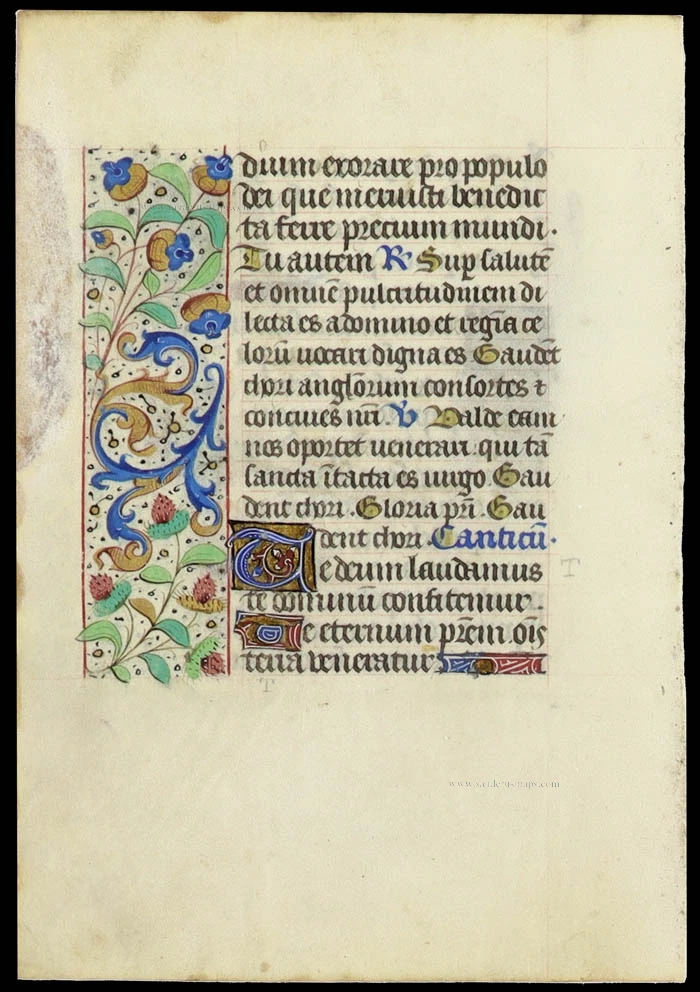 dium exorare pro populo
dei que meruisti benedic
ta ferre precium mundi.
Tu autem R Sup salutē
et omnē pulcritudinem di
lecta es a domino et regīa ce
lorū uocari digna es Gaudēt
chori anglorum consortes ⁊
conciues nrī. V Valde eam
nos oportet uenerari. qui tā
sancta ītacta es uirgo. Gau
dent chori. Gloria prī. Gau
dent chori. Canticū.
Te deum laudamus
te dominū confitemur.
Te eternum prēm oīs
terra ueneratur
T
T